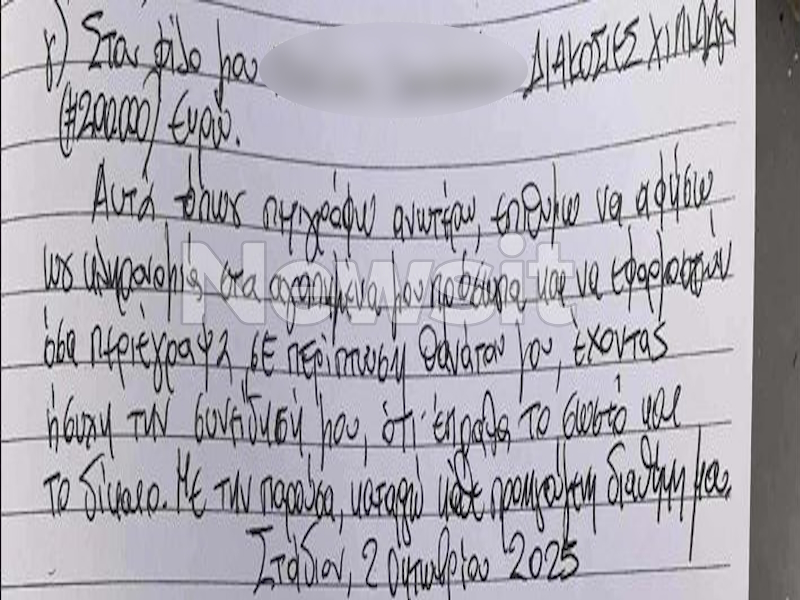 γ) Στον φίλο μου ΔΙΑΚΟΣΙΕΣ ΧΙΛΙΑΔΕΣ
(#200.000) Ευρώ.
Αυτά όπως περιγράφω ανωτέρω, επιθυμώ να αφήσω
ως κληρονομιά στα αγαπημένα μου πρόσωπα και να εφαρμοστούν
όσα περιέγραψα σε περίπτωση θανάτου μου, έχοντας
ήσυχη την συνείδησή μου, ότι έπραξα το σωστό και
το δίκαιο. Με την παρούσα, καταργώ κάθε προηγούμενη διαθήκη μου.
Στάδιον, 2 Οκτωβρίου 2025
Newsit